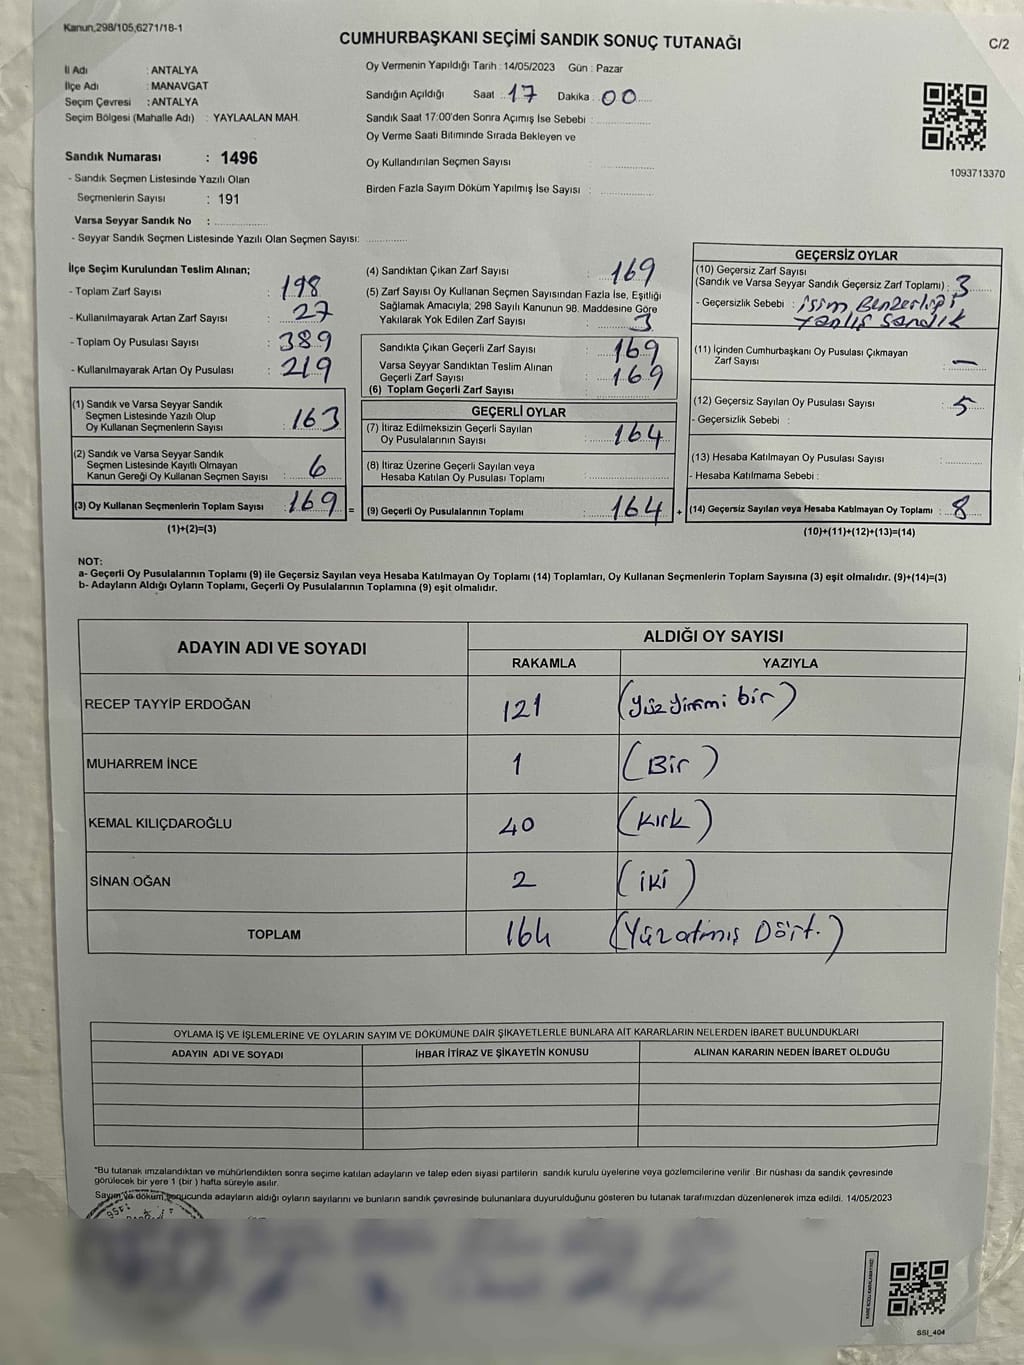 Kanun,298/105,6271/18-1
CUMHURBAŞKANI SEÇİMİ SANDIK SONUÇ TUTANAĞI
C/2
İl Adı : ANTALYA
İlçe Adı : MANAVGAT
Seçim Çevresi : ANTALYA
Seçim Bölgesi (Mahalle Adı) : YAYLAALAN MAH.
Sandık Numarası : 1496
- Sandık Seçmen Listesinde Yazılı Olan
Seçmenlerin Sayısı : 191
Varsa Seyyar Sandık No :
- Seyyar Sandık Seçmen Listesinde Yazılı Olan Seçmen Sayısı:
Oy Vermenin Yapıldığı Tarih : 14/05/2023 Gün : Pazar
Sandığın Açıldığı Saat : 17 Dakika : 00
Sandık Saat 17:00'den Sonra Açımış İse Sebebi :
Oy Verme Saati Bitiminde Sırada Bekleyen ve
Oy Kullandırılan Seçmen Sayısı :
Birden Fazla Sayım Döküm Yapılmış İse Sayısı :
1093713370
İlçe Seçim Kurulundan Teslim Alınan;
- Toplam Zarf Sayısı : 198
- Kullanılmayarak Artan Zarf Sayısı : 27
- Toplam Oy Pusulası Sayısı : 389
- Kullanılmayarak Artan Oy Pusulası : 219
(1) Sandık ve Varsa Seyyar Sandık
Seçmen Listesinde Yazılı Olup
Oy Kullanan Seçmenlerin Sayısı : 163
(2) Sandık ve Varsa Seyyar Sandık
Seçmen Listesinde Kayıtlı Olmayan
Kanun Gereği Oy Kullanan Seçmen Sayısı : 6
(3) Oy Kullanan Seçmenlerin Toplam Sayısı : 169 =
(1)+(2)=(3)
(4) Sandıktan Çıkan Zarf Sayısı : 169
(5) Zarf Sayısı Oy Kullanan Seçmen Sayısından Fazla İse, Eşitliği
Sağlamak Amacıyla; 298 Sayılı Kanunun 98. Maddesine Göre
Yakılarak Yok Edilen Zarf Sayısı : 3
Sandıkta Çıkan Geçerli Zarf Sayısı : 169
Varsa Seyyar Sandıktan Teslim Alınan
Geçerli Zarf Sayısı : 169
(6) Toplam Geçerli Zarf Sayısı :
GEÇERLİ OYLAR
(7) İtiraz Edilmeksizin Geçerli Sayılan
Oy Pusulalarının Sayısı : 164
(8) İtiraz Üzerine Geçerli Sayılan veya
Hesaba Katılan Oy Pusulası Toplamı :
(9) Geçerli Oy Pusulalarının Toplamı : 164 +
GEÇERSİZ OYLAR
(10) Geçersiz Zarf Sayısı
(Sandık ve Varsa Seyyar Sandık Geçersiz Zarf Toplamı) : 3
- Geçersizlik Sebebi : isim Benzerliği
Yanlış Sandık
(11) İçinden Cumhurbaşkanı Oy Pusulası Çıkmayan
Zarf Sayısı : —
(12) Geçersiz Sayılan Oy Pusulası Sayısı : 5
- Geçersizlik Sebebi :
(13) Hesaba Katılmayan Oy Pusulası Sayısı :
- Hesaba Katılmama Sebebi :
(14) Geçersiz Sayılan veya Hesaba Katılmayan Oy Toplamı : 8
(10)+(11)+(12)+(13)=(14)
NOT:
a- Geçerli Oy Pusulalarının Toplamı (9) ile Geçersiz Sayılan veya Hesaba Katılmayan Oy Toplamı (14) Toplamları, Oy Kullanan Seçmenlerin Toplam Sayısına (3) eşit olmalıdır. (9)+(14)=(3)
b- Adayların Aldığı Oyların Toplamı, Geçerli Oy Pusulalarının Toplamına (9) eşit olmalıdır.
ADAYIN ADI VE SOYADI
ALDIĞI OY SAYISI
RAKAMLA YAZIYLA
RECEP TAYYİP ERDOĞAN 121 (yüzyirmi bir)
MUHARREM İNCE 1 (Bir)
KEMAL KILIÇDAROĞLU 40 (Kırk)
SİNAN OĞAN 2 (iki)
TOPLAM 164 (Yüzatmış Dört.)
OYLAMA İŞ VE İŞLEMLERİNE VE OYLARIN SAYIM VE DÖKÜMÜNE DAİR ŞİKAYETLERLE BUNLARA AİT KARARLARIN NELERDEN İBARET BULUNDUKLARI
ADAYIN ADI VE SOYADI İHBAR İTİRAZ VE ŞİKAYETİN KONUSU ALINAN KARARIN NEDEN İBARET OLDUĞU
"Bu tutanak imzalandıktan ve mühürlendikten sonra seçime katılan adayların ve talep eden siyasi partilerin sandık kurulu üyelerine veya gözlemcilerine verilir .Bir nüshası da sandık çevresinde
görülecek bir yere 1 (bir ) hafta süreyle asılır.
Sayım ve döküm sonucunda adayların aldığı oyların sayılarını ve bunların sandık çevresinde bulunanlara duyurulduğunu gösteren bu tutanak tarafımızdan düzenlenerek imza edildi. 14/05/2023
SSI_404